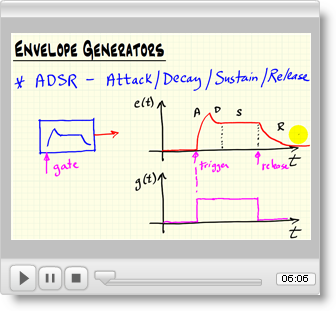 ENVELOPE GENERATORS
* ADSR - ATTACK/DECAY/SUSTAIN/RELEASE
e(t)
A D S R
gate
trigger
release
t
g(t)
t
06:06